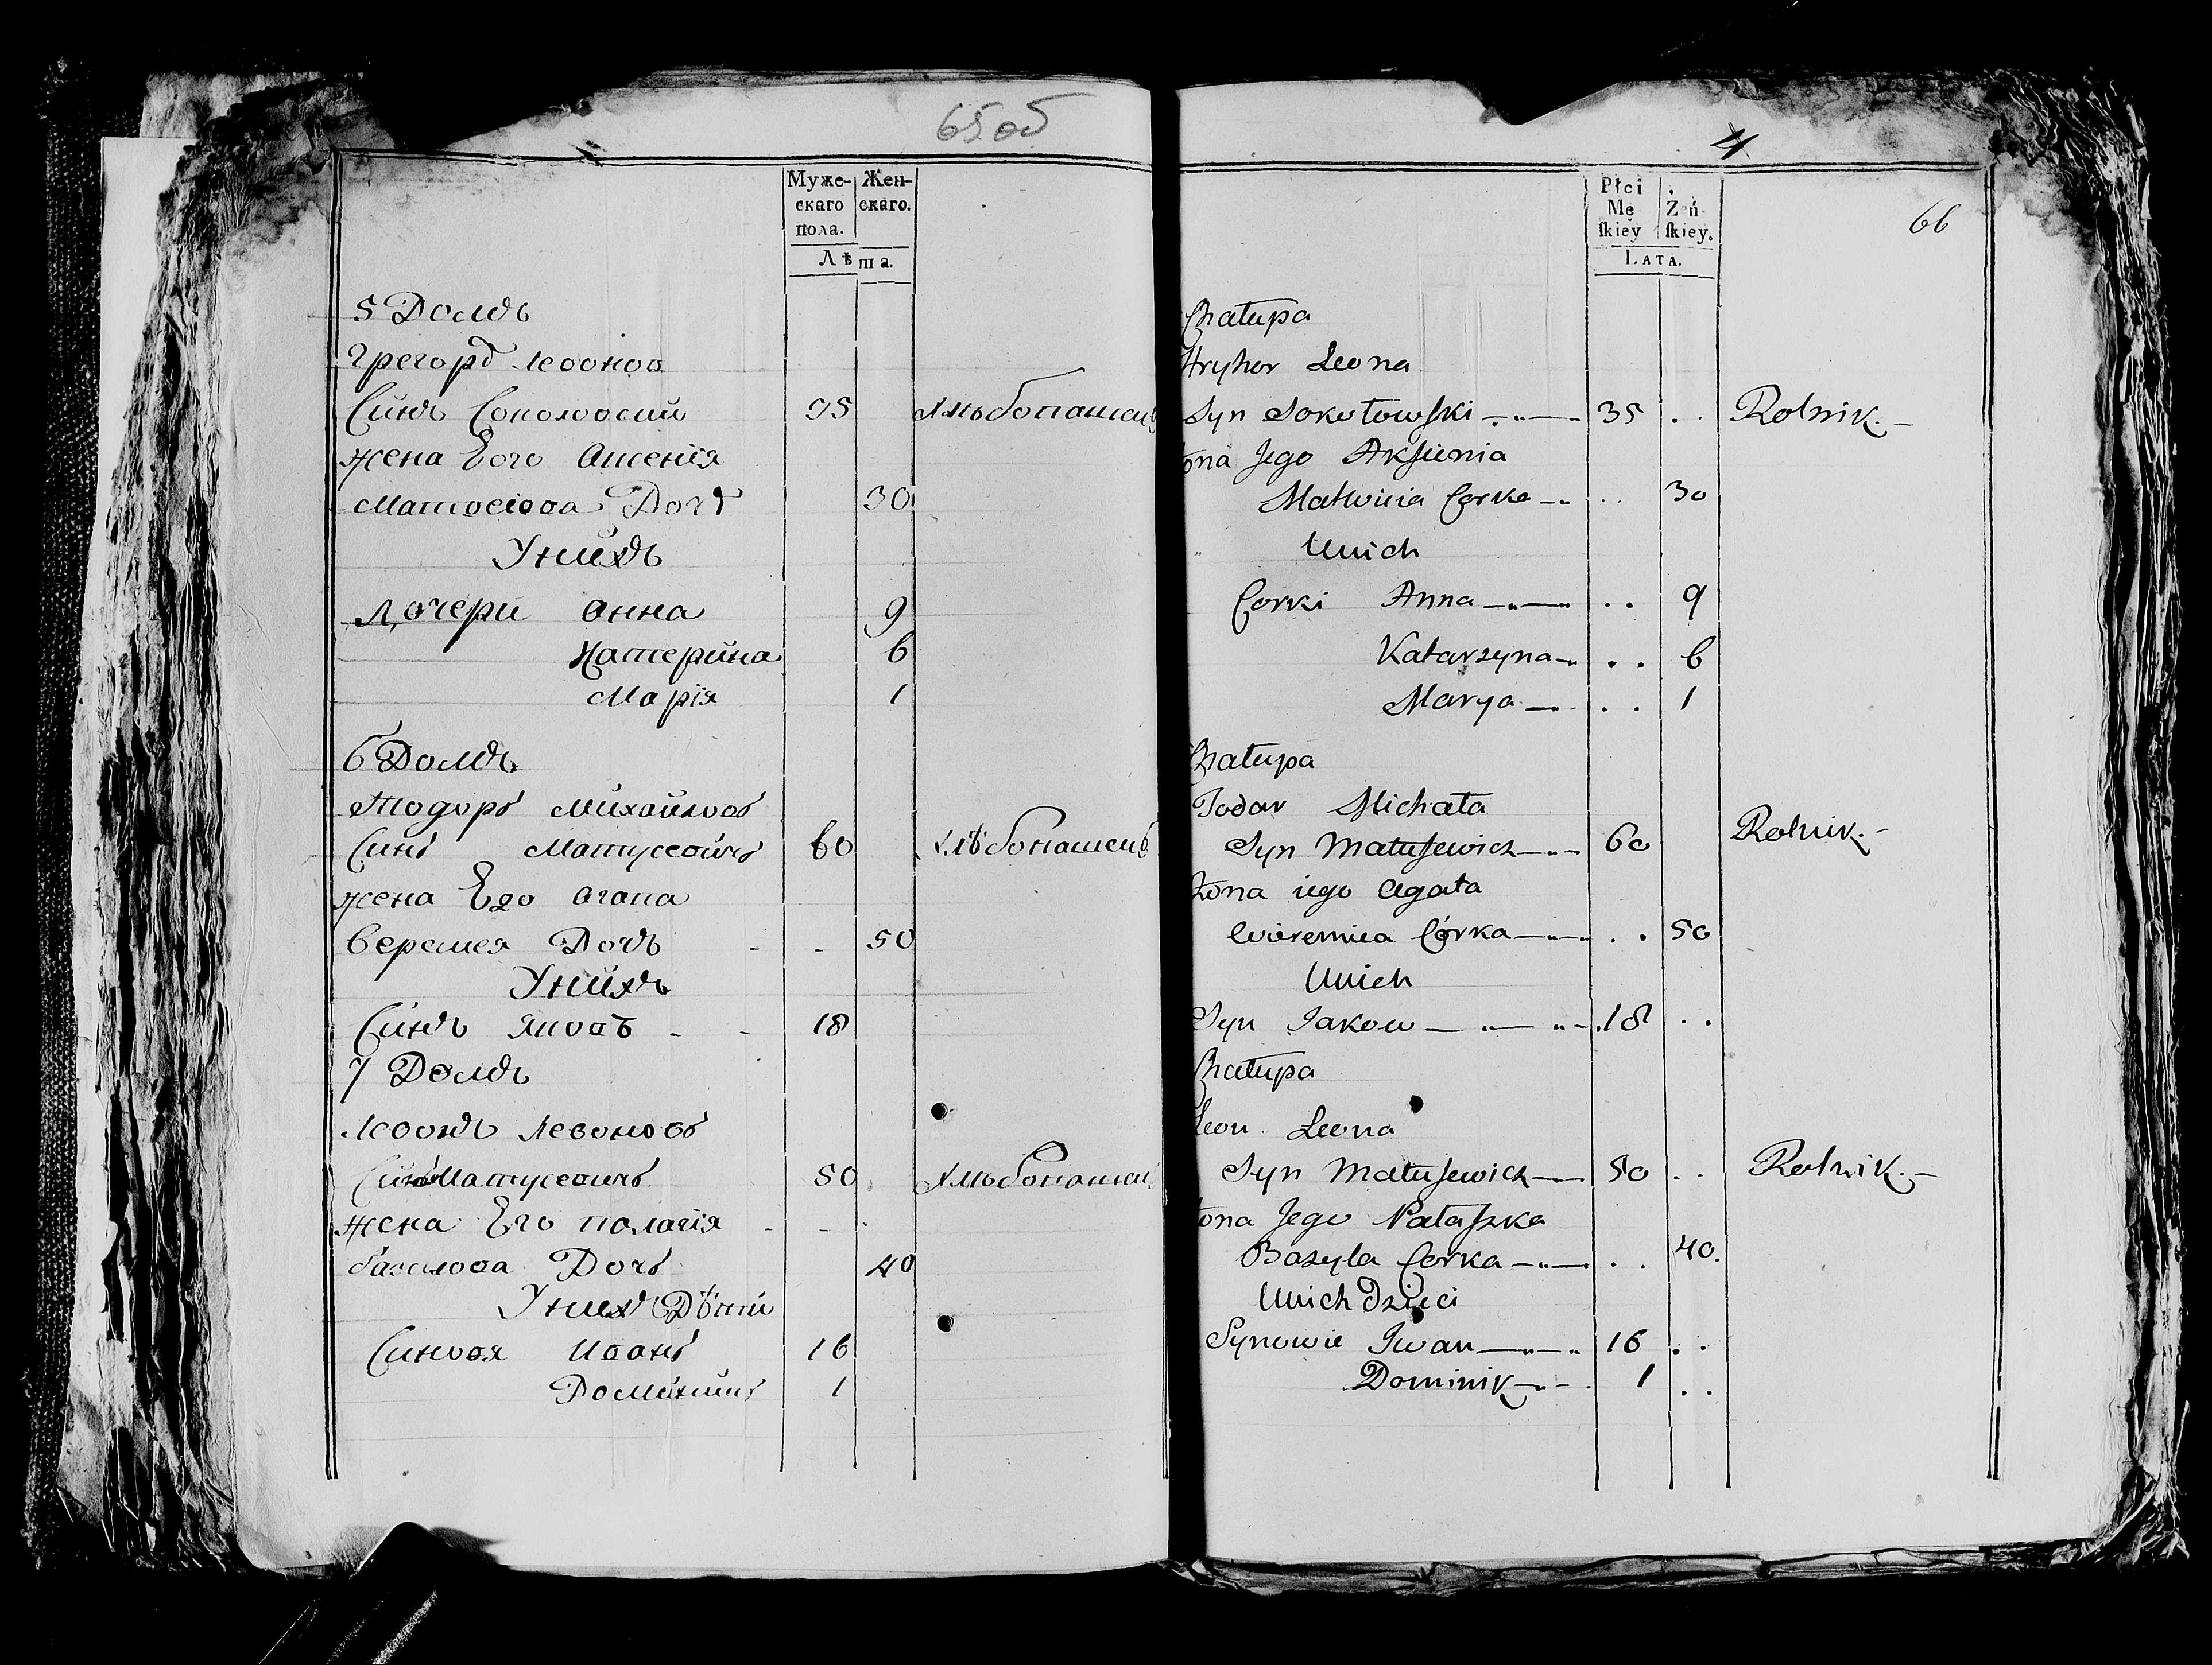 65 об
Муже- Жен-
скаго скаго.
пола.
Лѣта.
5 Домъ
Грегоръ Левонов
Синъ Соколовский 35 Хлѣбопашец
жена Его Аксения
Матвеюва Доч 30
У них
Дочери Анна 9
Катерина 6
Мария 1
6 Домъ
Тодоръ Михайлов
Синъ Матусевичъ 60 хлѣбопашецъ
жена Его Агапа
Веремея Дочь - - 50
У них
Синъ Яков - - 18
7 Домъ
Левонъ Левоновъ
Синъ Матусевичъ 50 Хлѣбопашец
жена Его полагия - - -
базилова Дочъ 40
У них Дѣти
Синовя Иванъ 16
Доминик 1
4
66
Płci Żeń
Mę skiey.
skiey
LATA.
Chałupa
Hryhor Leona
Syn Sokołowski 35 . . Rolnik.
żona Jego Aksienia
Matwieia Corka . . 30
U nich
Corki Anna . . 9
Katarzyna . . 6
Marya . . 1
Chałupa
Todar Michała
Syn Matusewicz 60 Rolnik.
Żona iego Agata
Wieremiea Córka . . 50
U nich
Syn Jakow 18 . .
Chałupa
Leon Leona
Syn Matusewicz 50 . . Rolnik.
Żona Jego Pałaszka
Bazyla Corka . . 40.
U nich Dzieci
Synowie Iwan 16 . .
Dominik 1 . .